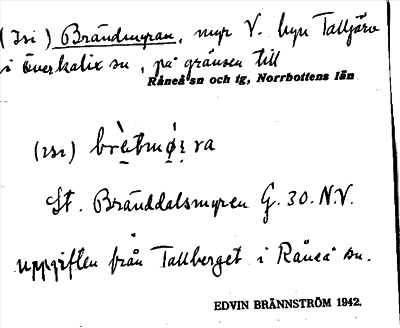 (Isi) Brändmyran, myr V. byn Talljärv
i Överkalix sn, på gränsen till
Råneå sn och tg, Norrbottens län
brè̀tmø̀ra
St. Bränddalsmyren G. 30. N.V.
uppgiften från Tallberget i Råneå sn.
EDVIN BRÄNNSTRÖM 1942.